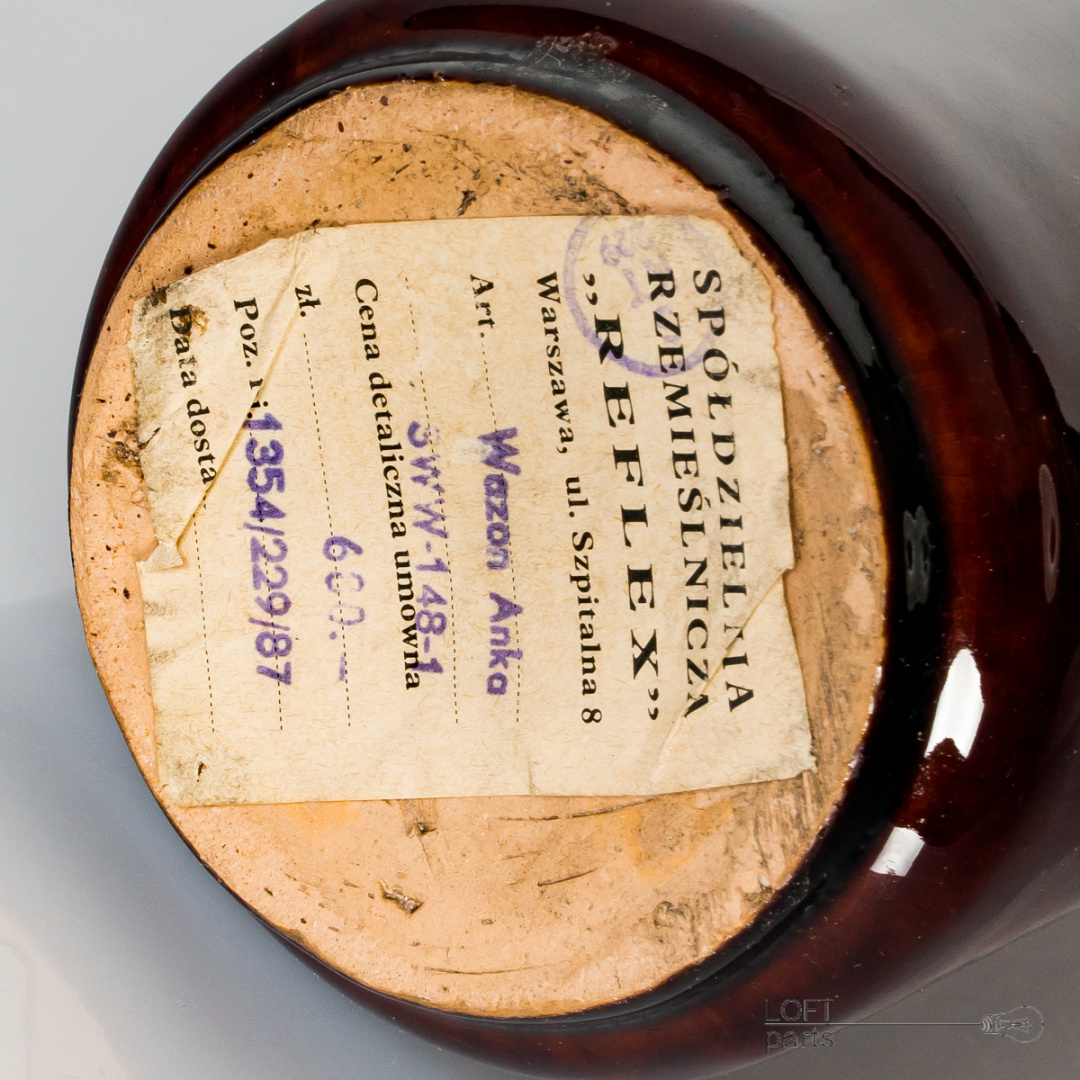 SPÓŁDZIELNIA
RZEMIEŚLNICZA
„REFLEX”
Warszawa, ul. Szpitalna 8
Art. Wazon Anka
SWW-148-1
Cena detaliczna umowna
zł.
Poz. 1354/229/87
Data dosta
LOFT
parts